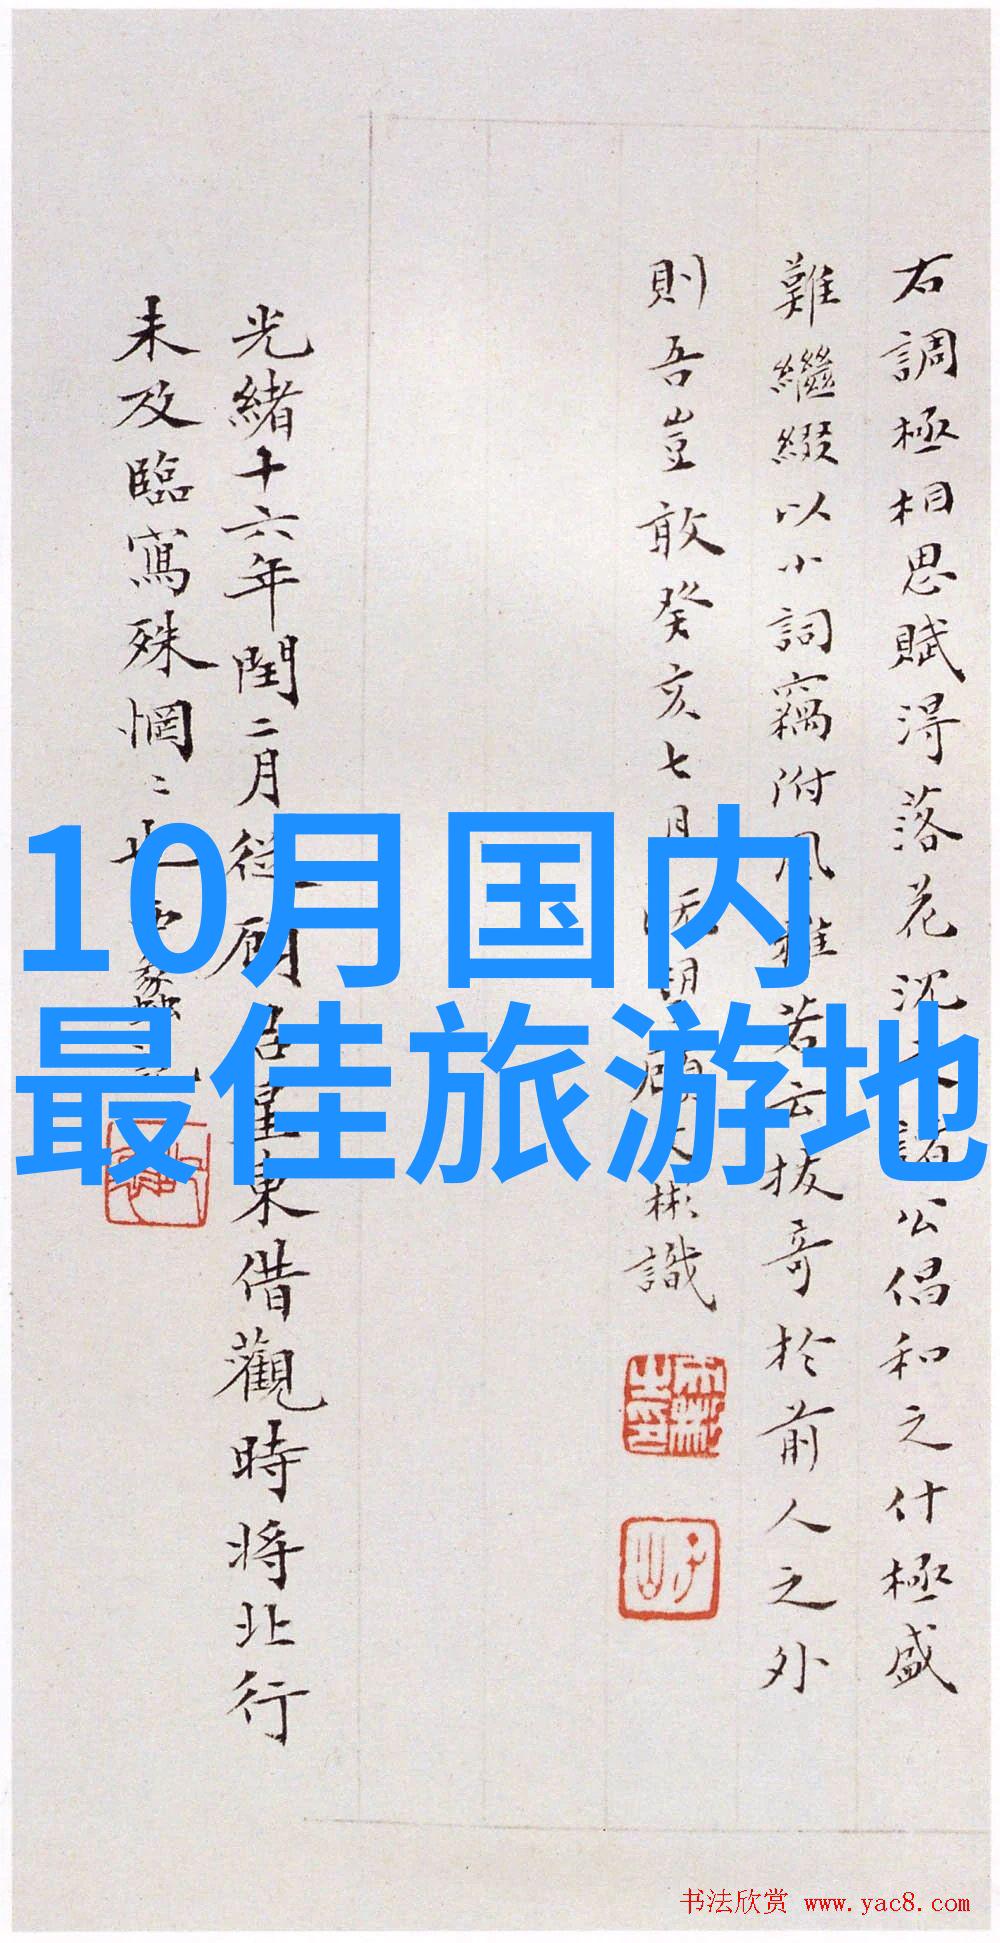 右調極相思賦得落花沈
公倡和之什極盛
難繼綴以小詞竊附風雅
若云拔奇於前人之外
則吾豈敢癸亥七月
彬識
光緒十六年閏二月從顧
皇東借觀時將北行
未及臨寫殊惘〻也
10月国内
最佳旅游地
书法欣赏 www.yac8.com